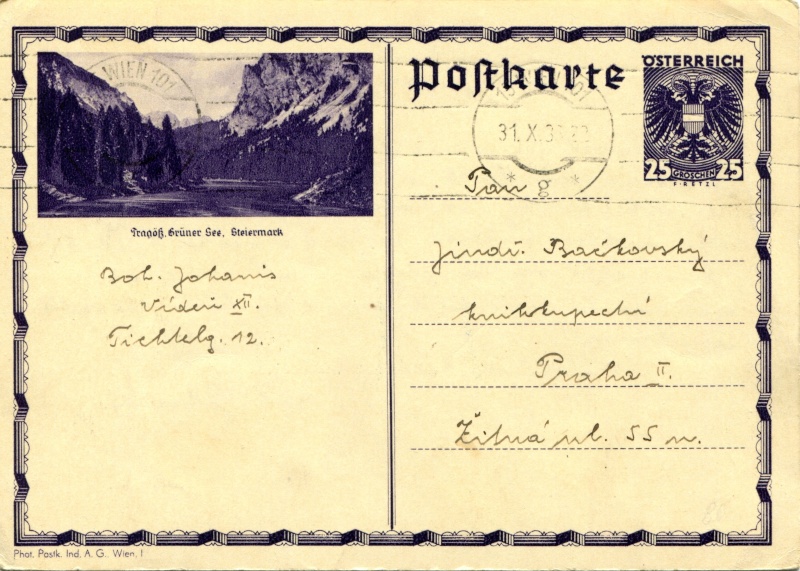 Postkarte
ÖSTERREICH
WIEN 101
31. X. 3
* g *
25 GROSCHEN 25
F. RETZL
Tragöß, Grüner See, Steiermark
Boh. Johanis
Vídeň XII.
Tichtelg. 12.
Pan
Jindř. Bačkovský
knihkupectví
Praha II.
Žitná ul. 55 n.
Phot. Postk. Ind. A. G., Wien, I